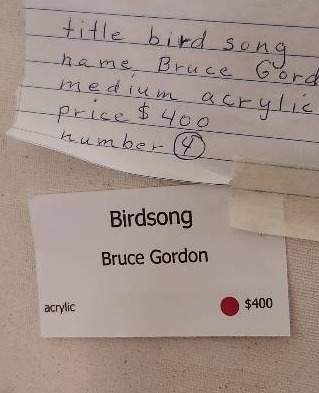 title bird song
name Bruce Gord
medium acrylic
price $ 400
number 4
Birdsong
Bruce Gordon
acrylic
$400